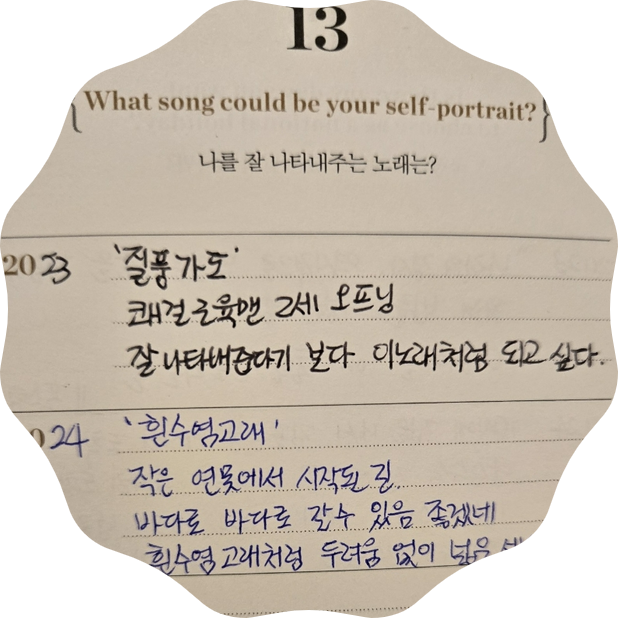 13
What song could be your self-portrait?
나를 잘 나타내주는 노래는?
2023 '질풍가도'
쾌걸근육맨 2세 오프닝
잘 나타내준다기 보다 이노래처럼 되고 싶다.
24 '흰수염고래'
작은 연못에서 시작된 길
바다로 바다로 갈수 있음 좋겠네
흰수염고래처럼 두려움 없이 넓은